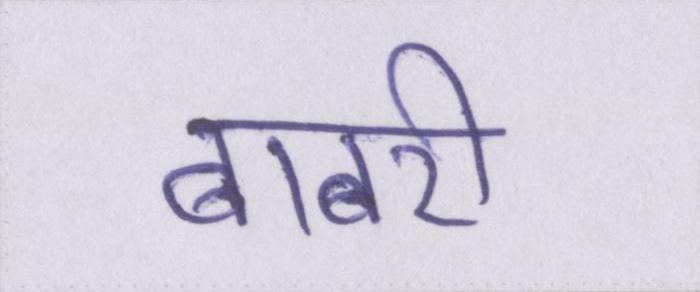 बाबरी